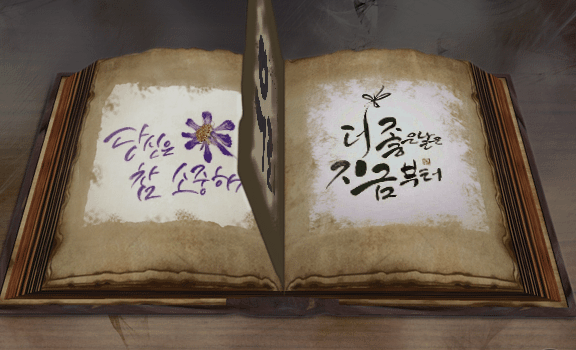 당신은
참 소중하
더 좋은날은
지금부터